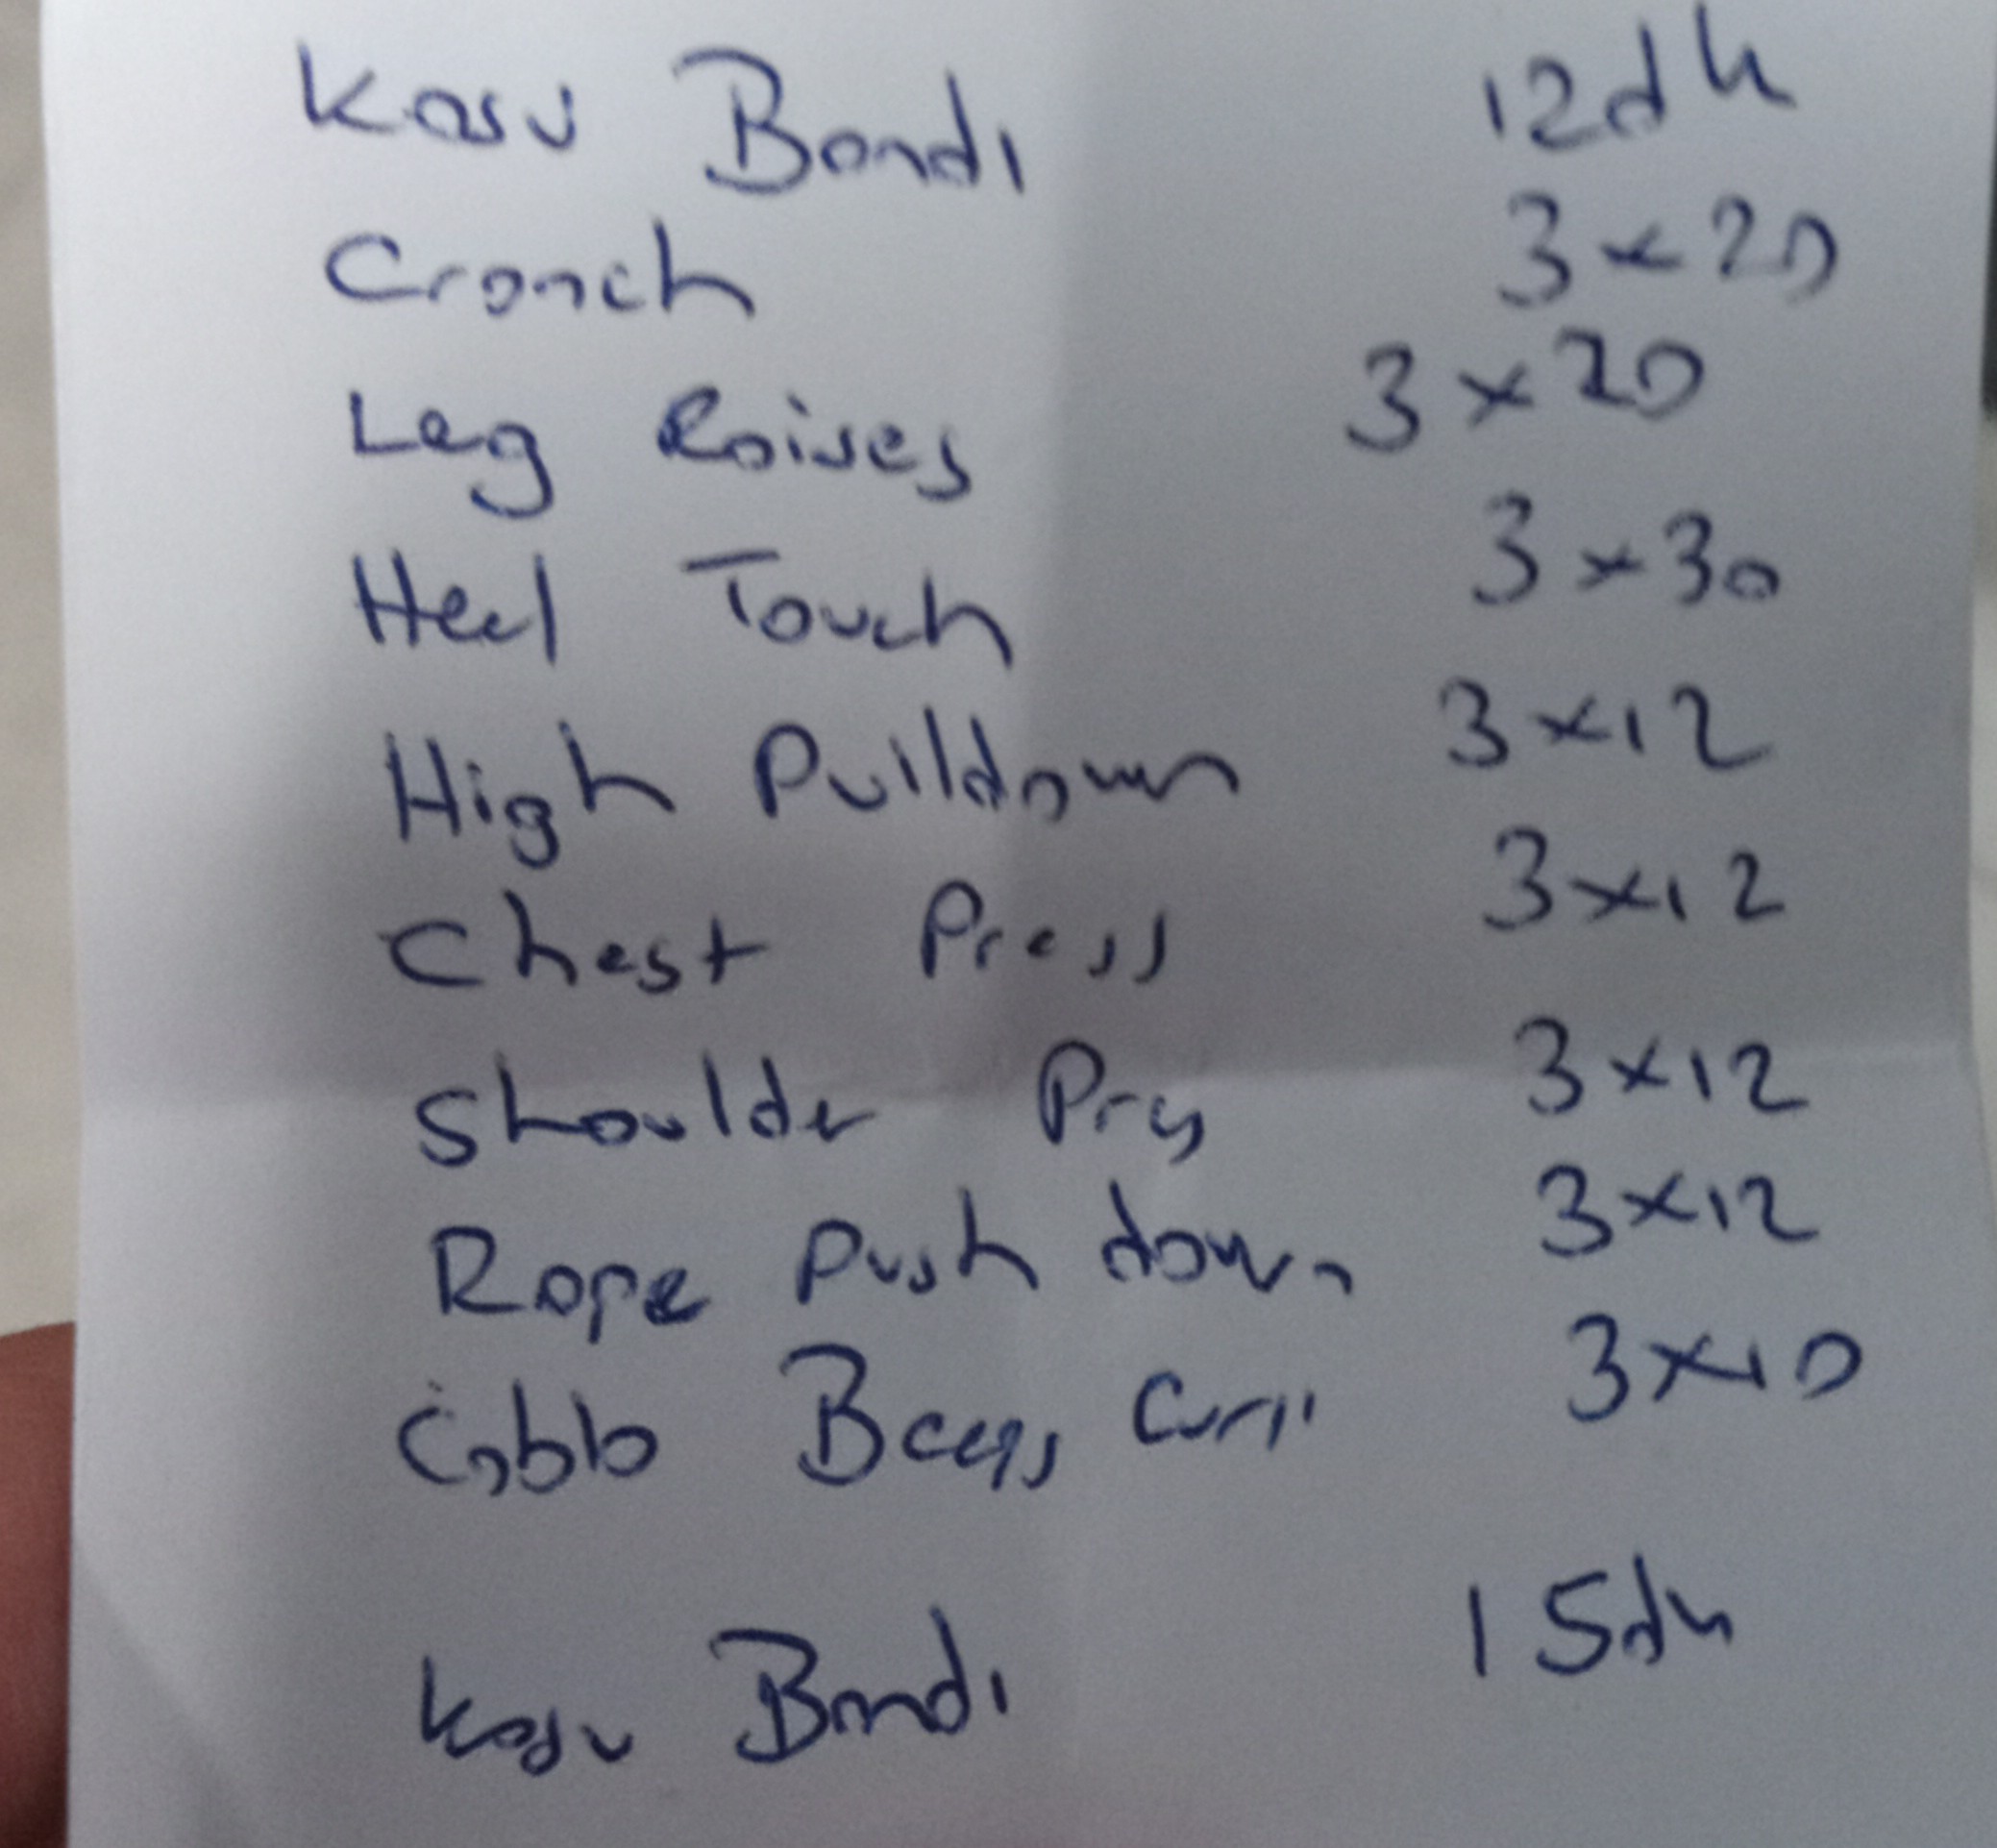 Kosu Bandı 12dk
Cronch 3x20
Leg Raises 3x20
Heel Touch 3x30
High Pulldown 3x12
Chest Press 3x12
Shoulder Pres 3x12
Rope Push down 3x12
3x10
Kosu Bandı 15dk